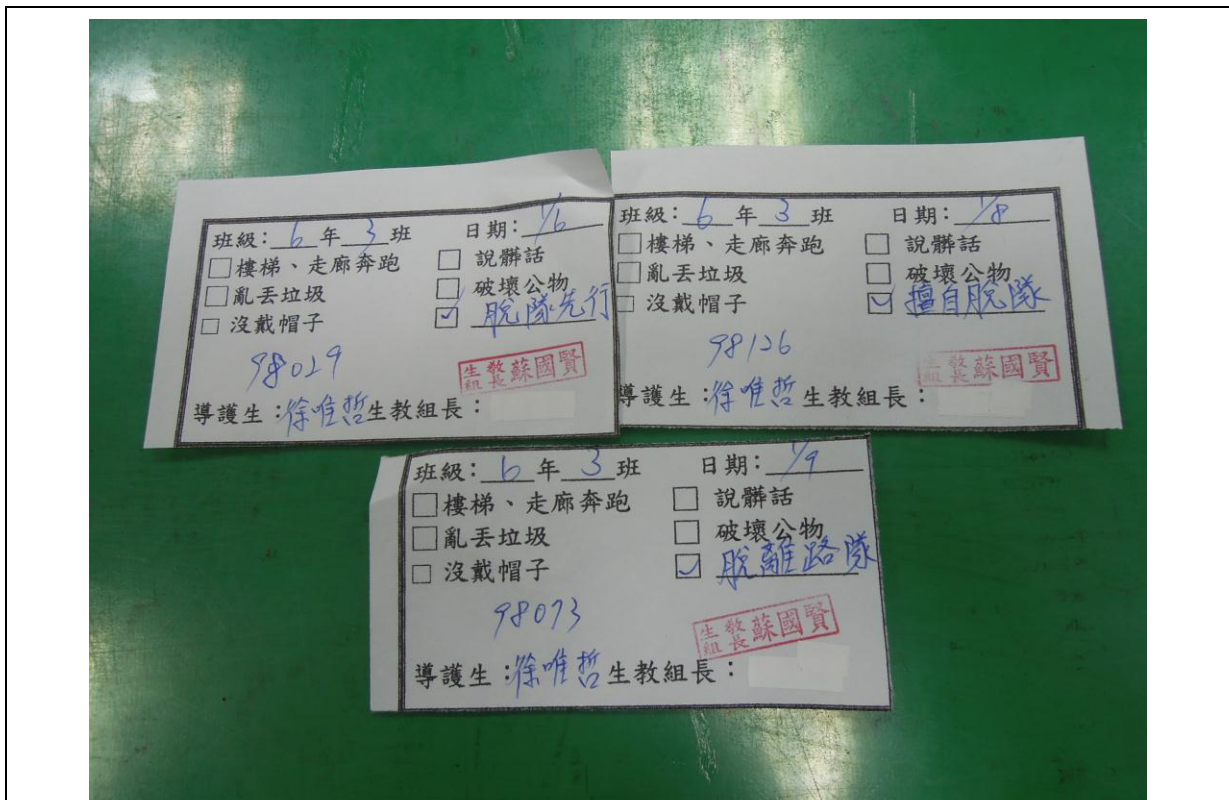 班級：6年3班 日期：1/6
□樓梯、走廊奔跑 □ 說髒話
□亂丟垃圾 □ 破壞公物
□ 沒戴帽子 ☑ 脫隊先行
98029
生教組長蘇國賢
導護生：徐唯哲生教組長：
班級：6年3班 日期：1/8
□樓梯、走廊奔跑 □ 說髒話
□亂丟垃圾 □ 破壞公物
□ 沒戴帽子 ☑ 擅自脫隊
98126
生教組長蘇國賢
導護生：徐唯哲生教組長：
班級：6年3班 日期：1/9
□樓梯、走廊奔跑 □ 說髒話
□亂丟垃圾 □ 破壞公物
□ 沒戴帽子 ☑ 脫離路隊
98073
生教組長蘇國賢
導護生：徐唯哲生教組長：